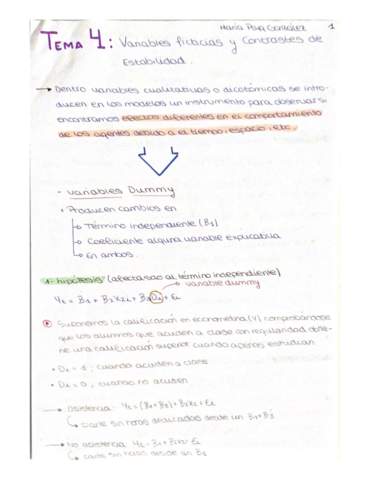 María Poya González 1
TEMA 4: Variables ficticias y Contrastes de
Estabilidad.
→ Dentro variables cualitativas o dicotómicas se intro-
ducen en los modelos un instrumento para observar si
encontramos efectos diferentes en el comportamiento
de los agentes debido a el tiempo, espacio, etc.
- Variables Dummy
• Producen cambios en
→ Término independiente (B1)
→ Coeficiente alguna variable explicativa
→ En ambos.
1- hipótesis (afecta solo al término independiente)
→ variable dummy
Yt = B1 + B2X2i + B3Di + Ei
Suponemos la calificación en econometría (Y) comprobándose
que los alumnos que acuden a clase con regularidad obtie-
ne una calificación superior cuando apenas estudian
• Di = 1; cuando acuden a clase
• Di = 0, cuando no acuden
→ asistencia: Yt = (B1+B3) + B2X2i + Ei
↳ parte sin horas dedicadas desde un B1+B3
→ No asistencia: Yt = B1 + B2X2i + Ei
↳ parte sin horas desde un B1